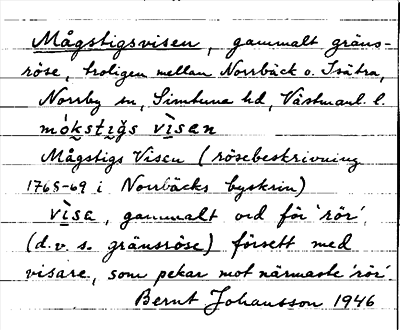 Mågstigsvisen, gammalt gräns-
röse, troligen mellan Norrbäck o. Isätra,
Norrby sn, Simtuna hd, Västmanl. l.
mókstigs vìsen
Mågstigs Visen (rösebeskrivning
1768-69 i Norrbäcks byskrin)
vìsa, gammalt ord för 'rör'
(d.v.s. gränsröse) försett med
visare, som pekar mot närmaste 'rör'
Bernt Johansson 1946